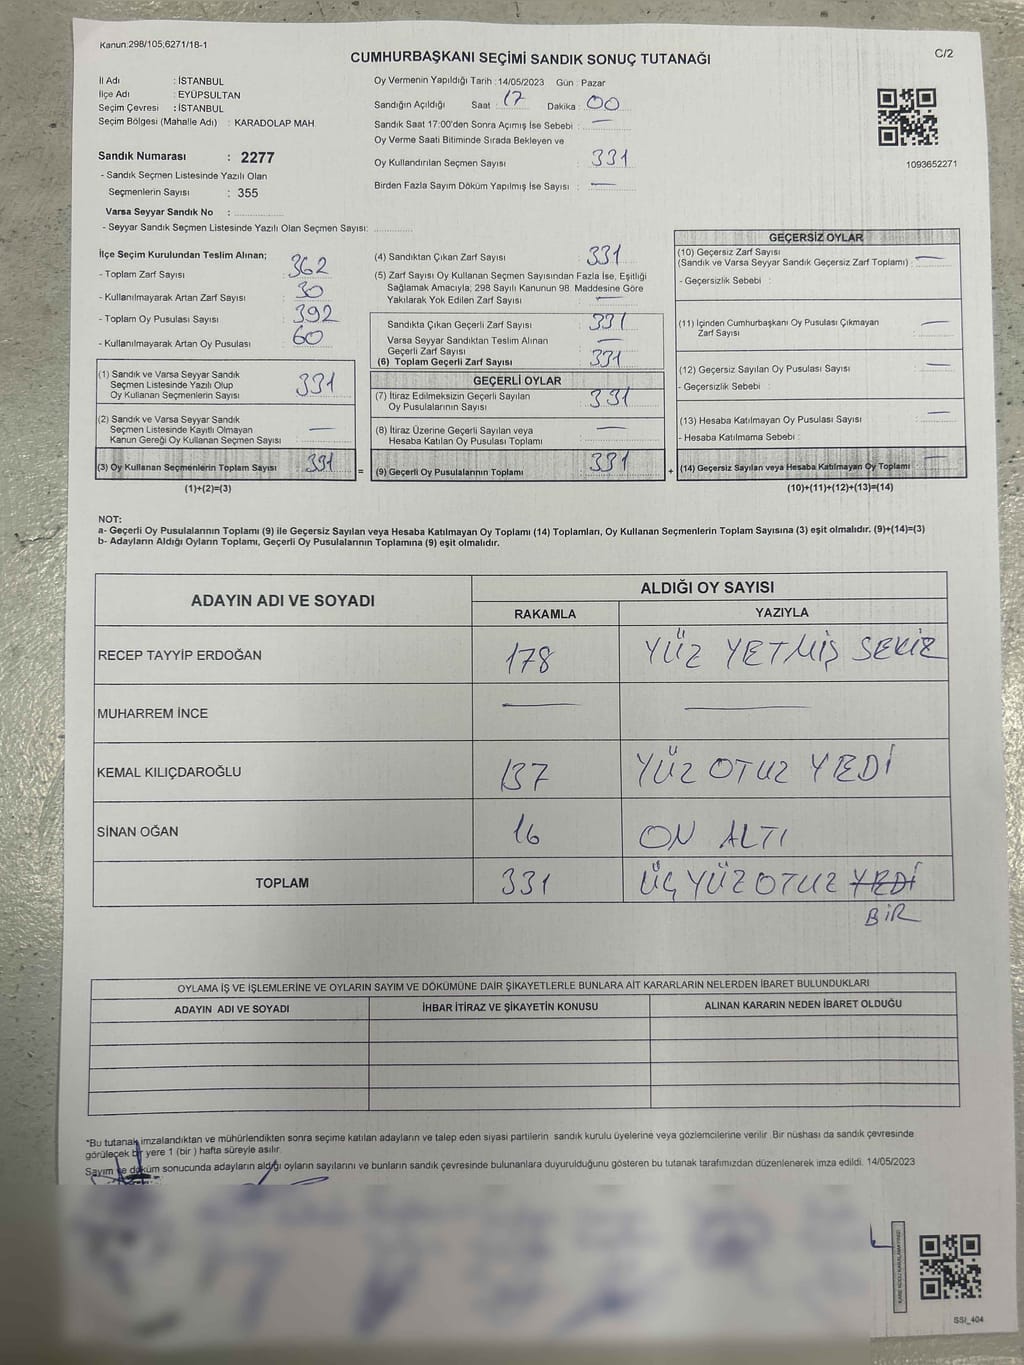 Kanun:298/105;6271/18-1
CUMHURBAŞKANI SEÇİMİ SANDIK SONUÇ TUTANAĞI
C/2
İl Adı : İSTANBUL
İlçe Adı : EYÜPSULTAN
Seçim Çevresi : İSTANBUL
Seçim Bölgesi (Mahalle Adı) : KARADOLAP MAH.
Sandık Numarası : 2277
- Sandık Seçmen Listesinde Yazılı Olan
Seçmenlerin Sayısı : 355
Varsa Seyyar Sandık No :
- Seyyar Sandık Seçmen Listesinde Yazılı Olan Seçmen Sayısı:
Oy Vermenin Yapıldığı Tarih : 14/05/2023 Gün : Pazar
Sandığın Açıldığı Saat : 17 Dakika : 00
Sandık Saat 17:00'den Sonra Açımış İse Sebebi : —
Oy Verme Saati Bitiminde Sırada Bekleyen ve
Oy Kullandırılan Seçmen Sayısı : 331
Birden Fazla Sayım Döküm Yapılmış İse Sayısı : —
1093652271
İlçe Seçim Kurulundan Teslim Alınan;
- Toplam Zarf Sayısı : 362
- Kullanılmayarak Artan Zarf Sayısı : 30
- Toplam Oy Pusulası Sayısı : 392
- Kullanılmayarak Artan Oy Pusulası : 60
(1) Sandık ve Varsa Seyyar Sandık
Seçmen Listesinde Yazılı Olup
Oy Kullanan Seçmenlerin Sayısı : 331
(2) Sandık ve Varsa Seyyar Sandık
Seçmen Listesinde Kayıtlı Olmayan
Kanun Gereği Oy Kullanan Seçmen Sayısı : —
(3) Oy Kullanan Seçmenlerin Toplam Sayısı : 331
(1)+(2)=(3)
(4) Sandıktan Çıkan Zarf Sayısı : 331
(5) Zarf Sayısı Oy Kullanan Seçmen Sayısından Fazla İse, Eşitliği
Sağlamak Amacıyla; 298 Sayılı Kanunun 98. Maddesine Göre
Yakılarak Yok Edilen Zarf Sayısı : —
Sandıkta Çıkan Geçerli Zarf Sayısı : 331
Varsa Seyyar Sandıktan Teslim Alınan
Geçerli Zarf Sayısı : —
(6) Toplam Geçerli Zarf Sayısı : 331
GEÇERLİ OYLAR
(7) İtiraz Edilmeksizin Geçerli Sayılan
Oy Pusulalarının Sayısı : 331
(8) İtiraz Üzerine Geçerli Sayılan veya
Hesaba Katılan Oy Pusulası Toplamı : —
= (9) Geçerli Oy Pusulalarının Toplamı : 331 +
GEÇERSİZ OYLAR
(10) Geçersiz Zarf Sayısı
(Sandık ve Varsa Seyyar Sandık Geçersiz Zarf Toplamı) : —
- Geçersizlik Sebebi :
(11) İçinden Cumhurbaşkanı Oy Pusulası Çıkmayan
Zarf Sayısı : —
(12) Geçersiz Sayılan Oy Pusulası Sayısı : —
- Geçersizlik Sebebi :
(13) Hesaba Katılmayan Oy Pusulası Sayısı : —
- Hesaba Katılmama Sebebi :
(14) Geçersiz Sayılan veya Hesaba Katılmayan Oy Toplamı : —
(10)+(11)+(12)+(13)=(14)
NOT:
a- Geçerli Oy Pusulalarının Toplamı (9) ile Geçersiz Sayılan veya Hesaba Katılmayan Oy Toplamı (14) Toplamları, Oy Kullanan Seçmenlerin Toplam Sayısına (3) eşit olmalıdır. (9)+(14)=(3)
b- Adayların Aldığı Oyların Toplamı, Geçerli Oy Pusulalarının Toplamına (9) eşit olmalıdır.
ADAYIN ADI VE SOYADI
ALDIĞI OY SAYISI
RAKAMLA YAZIYLA
RECEP TAYYİP ERDOĞAN 178 YÜZ YETMİŞ SEKİZ
MUHARREM İNCE — —
KEMAL KILIÇDAROĞLU 137 YÜZ OTUZ YEDİ
SİNAN OĞAN 16 ON ALTI
TOPLAM 331 ÜÇ YÜZ OTUZ YEDİ
BİR
OYLAMA İŞ VE İŞLEMLERİNE VE OYLARIN SAYIM VE DÖKÜMÜNE DAİR ŞİKAYETLERLE BUNLARA AİT KARARLARIN NELERDEN İBARET BULUNDUKLARI
ADAYIN ADI VE SOYADI İHBAR İTİRAZ VE ŞİKAYETİN KONUSU ALINAN KARARIN NEDEN İBARET OLDUĞU
*Bu tutanak imzalandıktan ve mühürlendikten sonra seçime katılan adayların ve talep eden siyasi partilerin sandık kurulu üyelerine veya gözlemcilerine verilir. Bir nüshası da sandık çevresinde
görülecek bir yere 1 (bir ) hafta süreyle asılır.
Sayım ve döküm sonucunda adayların aldığı oyların sayılarını ve bunların sandık çevresinde bulunanlara duyurulduğunu gösteren bu tutanak tarafımızdan düzenlenerek imza edildi. 14/05/2023
SSI_404